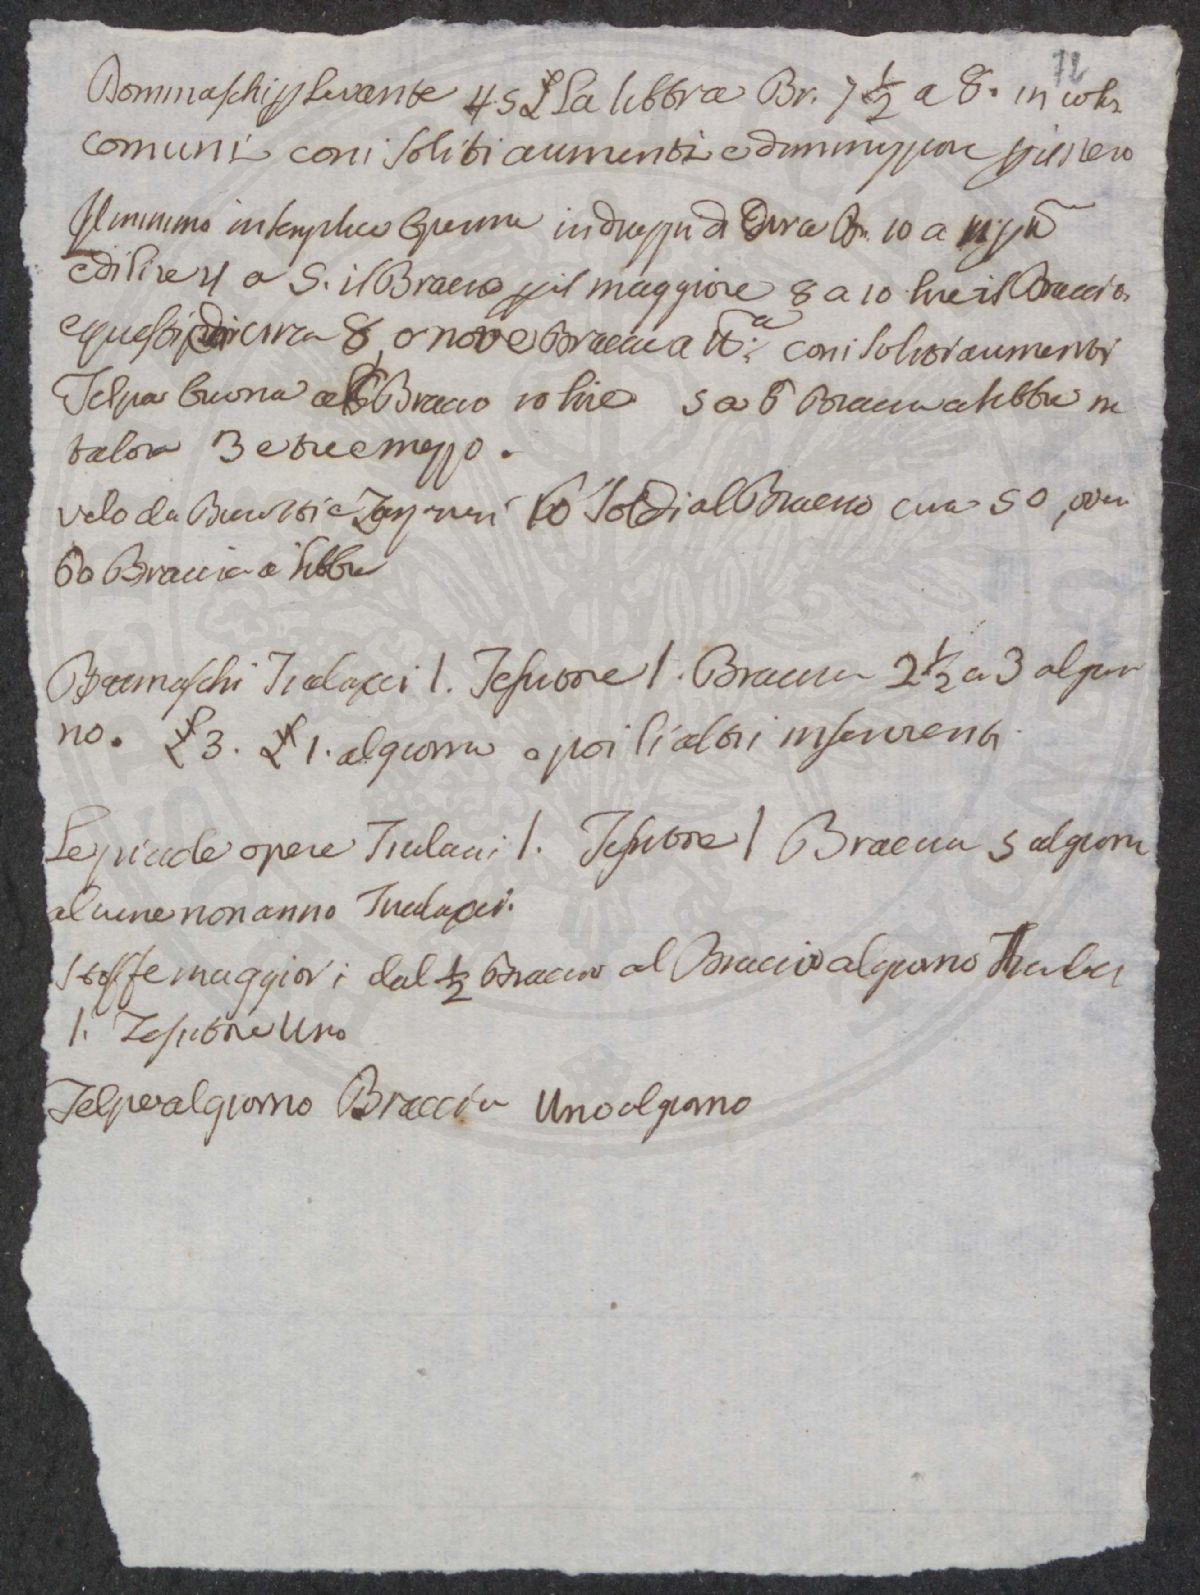 72
Dommaschi p Levante 45 £ La libbra Br. 7 1/2 a 8. in
comuni con i soliti aumenti e
Il minimo in semplice in drappi di Br. 10 a
e di lire 4 a 5. il Braccio p il maggiore 8 a 10 lire il Braccio
e questi di circa 8, o nove Braccia a con i soliti aumenti
Felpa buona al Braccio 10 lire 5 a 6 Braccia a libbra
talora 3 e tre e mezzo.
velo da Buratti e 60 Soldi al Braccio circa 50,
60 Braccia a libbra
Dammaschi Tralacci 1. Tessitore 1. Braccia 2 1/2 a 3 al gior
no. £ 3. £ 1. al giorno e poi li altri inservienti
Le piccole opere Tralacci 1. Tessitore 1 Braccia 5 al giorno
alcune non anno Tralacci.
Stoffe maggiori dal 1/2 Braccio al Braccio al giorno Tralacci
1. Tessitore Uno
Felpe al giorno Braccia Uno al giorno